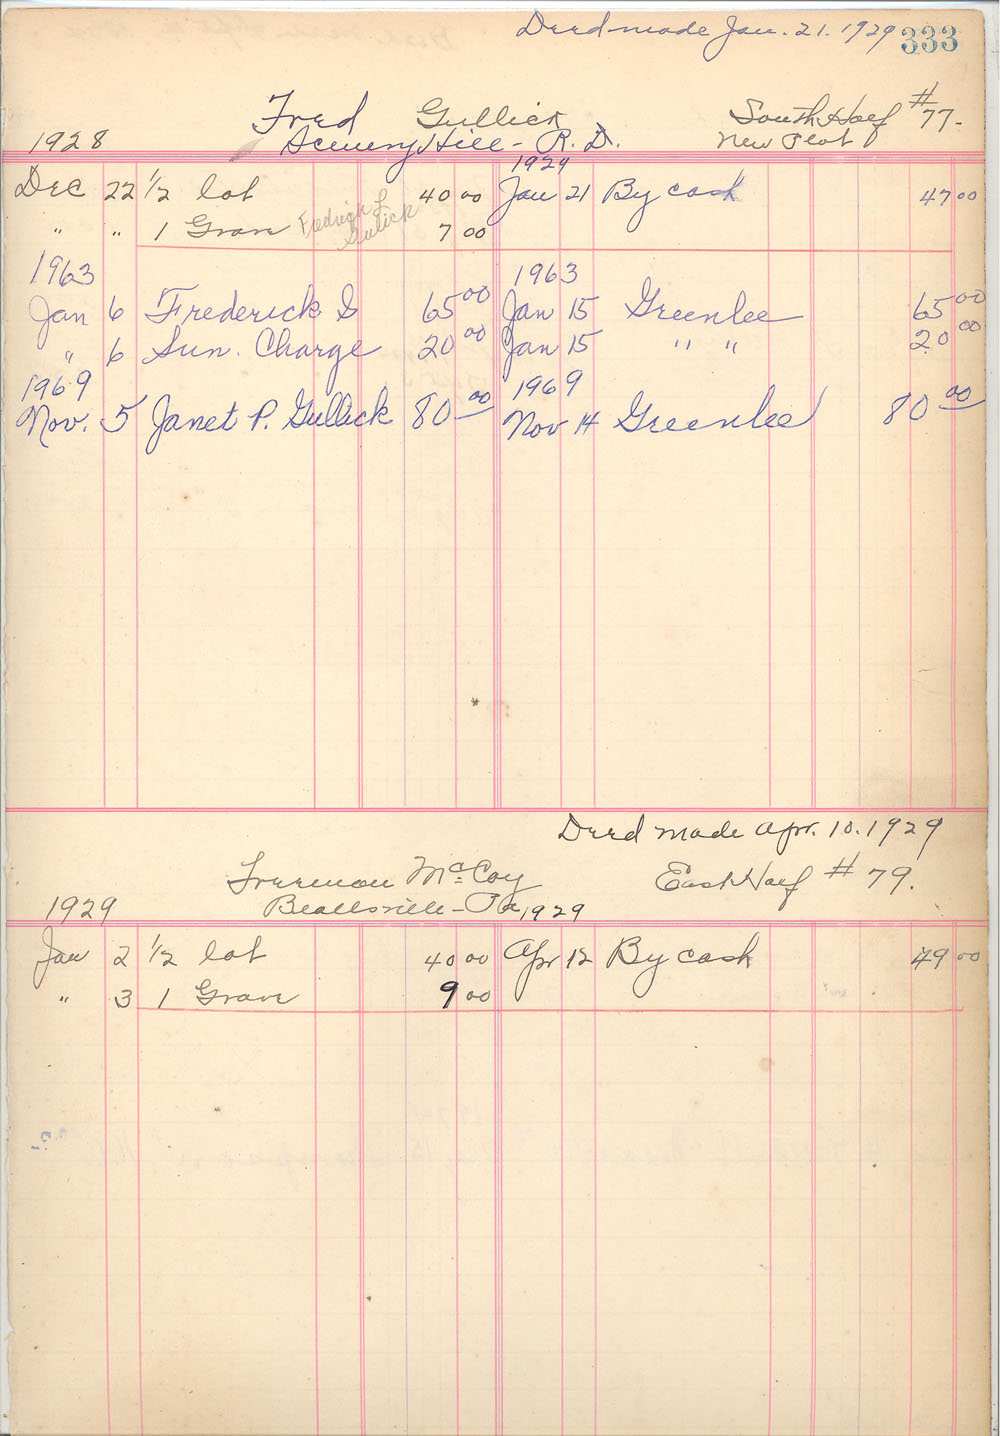 Deed made Jan. 21. 1929 333
Fred Gullick South Half #77-
1928 Scenery Hill - R. D. New Plot
1929
Dec 22 1/2 lot 40 00 Jan 21 By cash 47 00
" " 1 Grave Fredrick L Gulick 7 00
1963 1963
Jan 6 Frederick G 65 00 Jan 15 Greenlee 65 00
" 6 Sun. Charge 20 00 Jan 15 " " 20 00
1969 1969
Nov. 5 Janet P. Gullick 80 00 Nov 14 Greenlee 80 00
Deed made Apr. 10. 1929
Freeman McCoy East Half #79.
1929 Beallsville - Pa 1929
Jan 2 1/2 lot 40 00 Apr 12 By cash 49 00
" 3 1 Grave 9 00